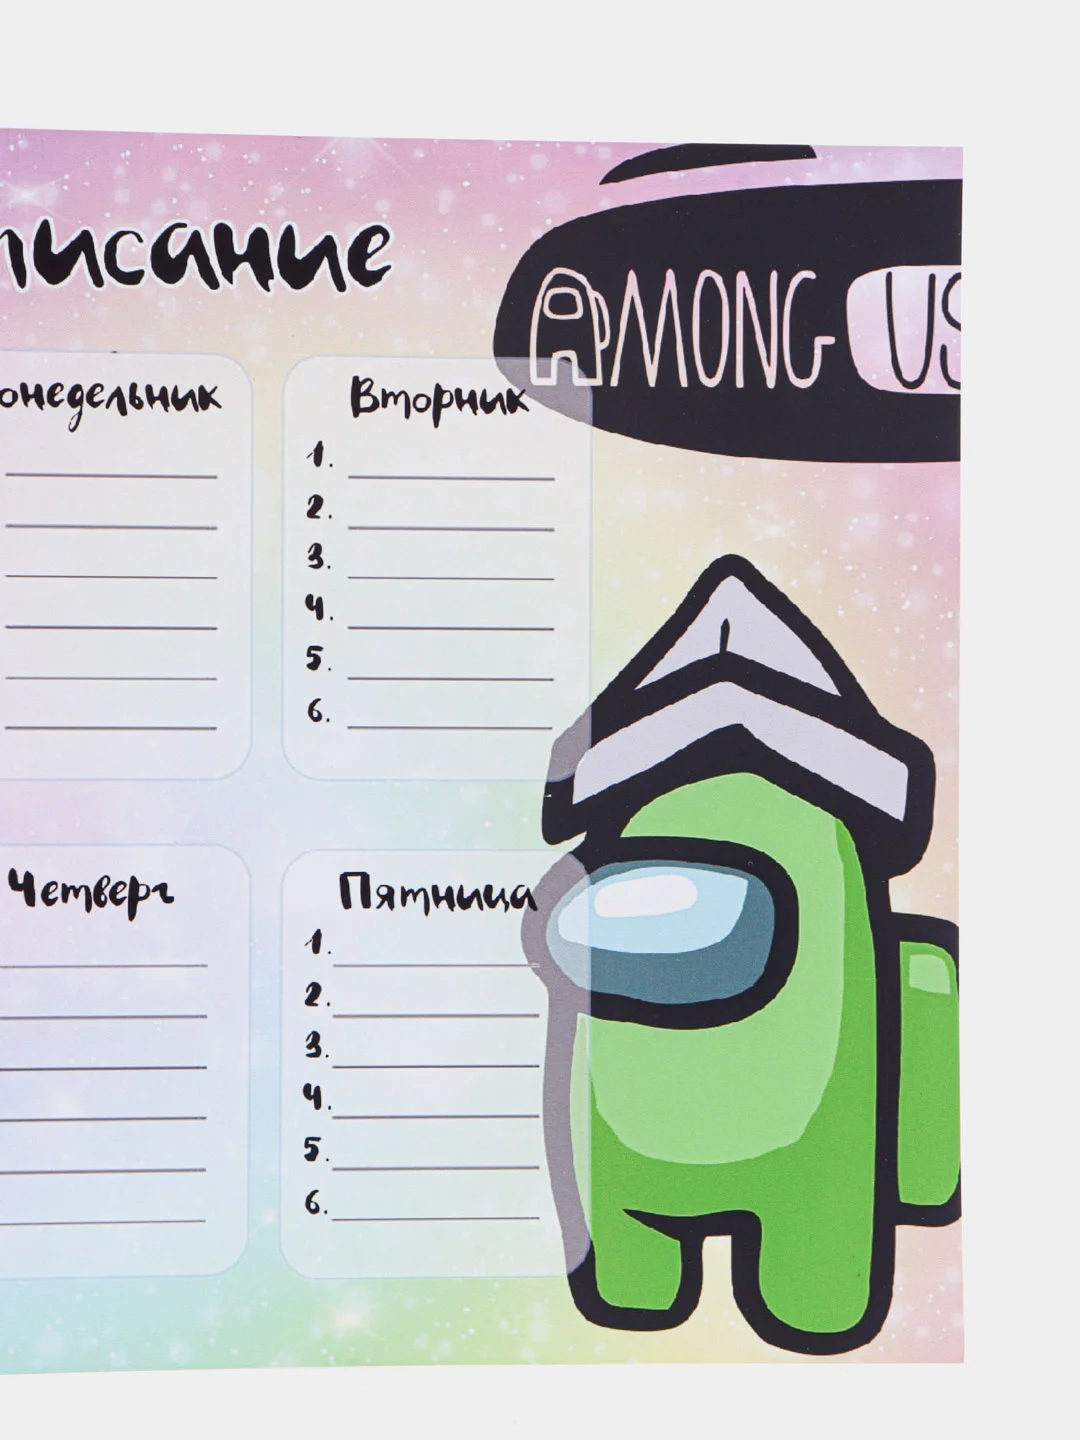 писание
AMONG US
онедельник
Вторник
1.
2.
3.
4.
5.
6.
Четверг
Пятница
1.
2.
3.
4.
5.
6.